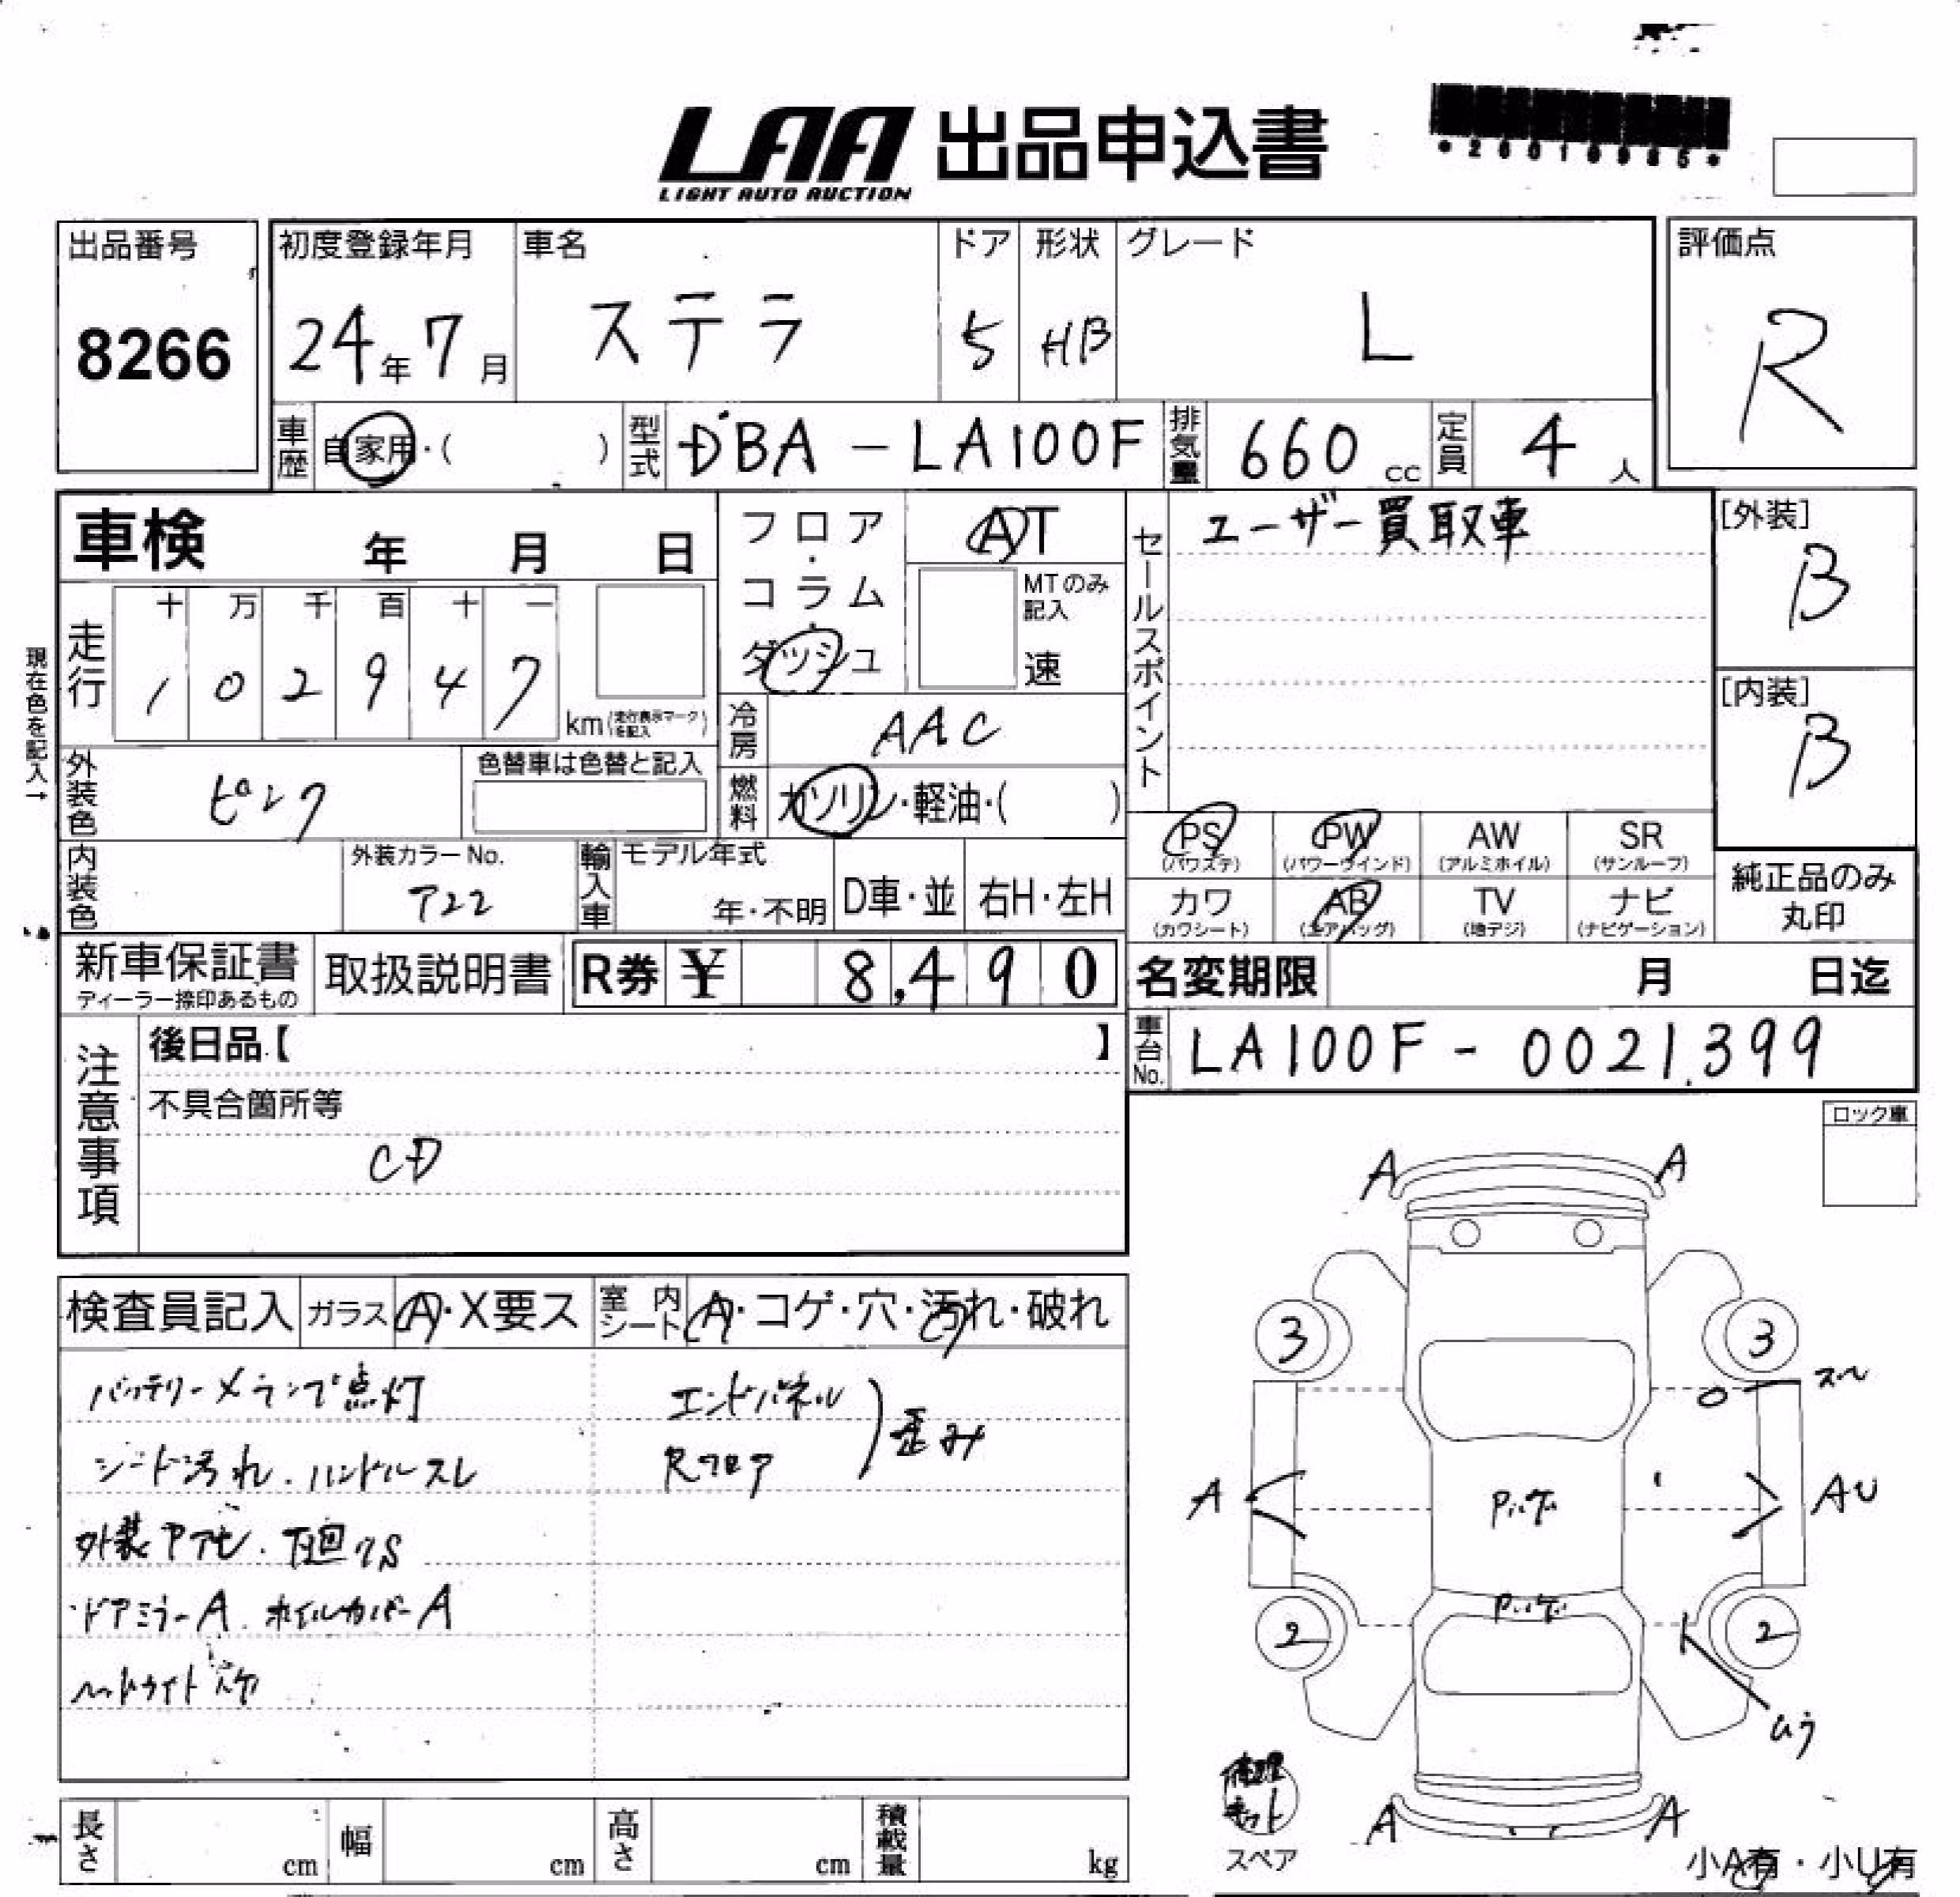 LAA 出品申込書
LIGHT AUTO AUCTION
出品番号
8266
初度登録年月
24年7月
車名
ステラ
ドア
5
形状
HB
グレード
L
評価点
R
車歴
自家用・( )
型式
DBA-LA100F
排気量
660 cc
定員
4 人
車検 年 月 日
フロア・コラム・ダッシュ
AT
MTのみ記入
速
セールスポイント
ユーザー買取車
[外装]
B
[内装]
B
現在色を記入→
走行
十 万 千 百 十 一
1 0 2 9 4 7
km(走行表示マークを記入)
冷房
AAC
燃料
ガソリン・軽油・( )
外装色
ピンク
色替車は色替と記入
内装色
外装カラーNo.
T22
輸入車
モデル年式
年・不明
D車・並
右H・左H
PS
(パワステ)
PW
(パワーウインド)
AW
(アルミホイル)
SR
(サンルーフ)
カワ
(カワシート)
AB
(エアバッグ)
TV
(地デジ)
ナビ
(ナビゲーション)
純正品のみ
丸印
新車保証書
ディーラー捺印あるもの
取扱説明書
R券 ¥ 8,490
名変期限 月 日迄
車台No.
LA100F-0021399
注意事項
後日品【 】
不具合箇所等
CD
ロック車
検査員記入
ガラス
A・X要ス
室内シート
A・コゲ・穴・汚れ・破れ
バッテリーメランプ点灯
シート汚れ.ハンドルスレ
ドアミラーA.ホイルカバーA
エンドパネル
Rフロア
歪み
A A
3 3
A
AU
2 2
ムラ
A A
修理キット
スペア
小A有・小U有
長さ cm
幅 cm
高さ cm
積載量 kg